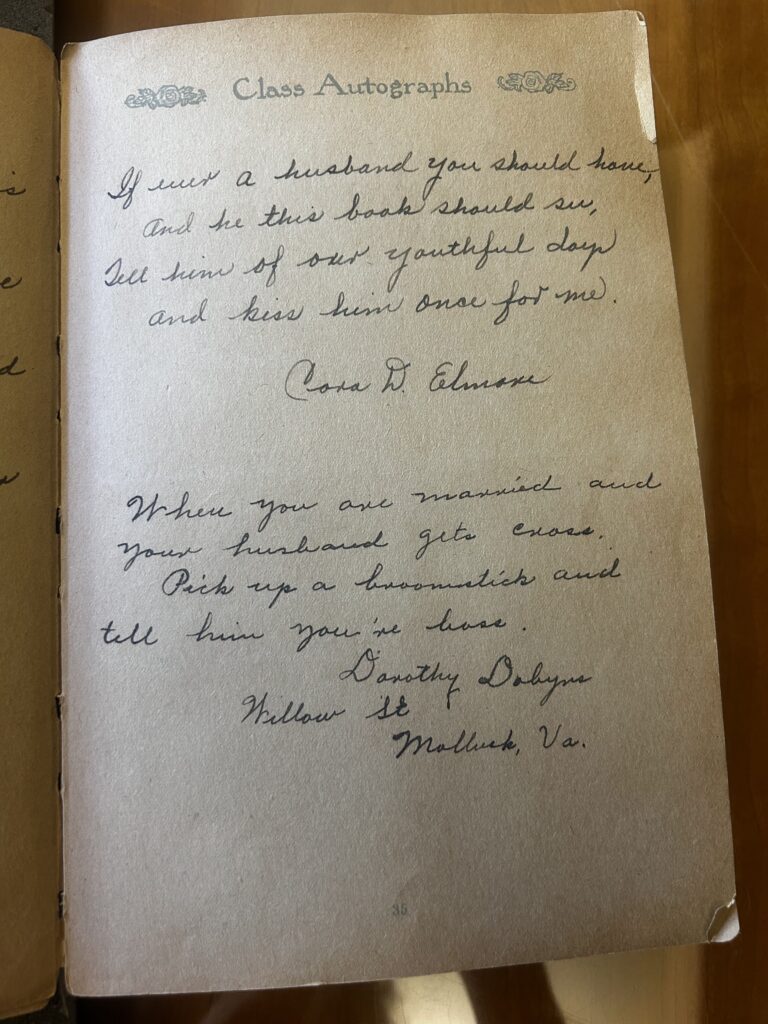 Class Autographs
If ever a husband you should have,
and he this book should see,
Tell him of our youthful days
and kiss him once for me.
Cora D. Elmore
When you are married and
your husband gets cross.
Pick up a broomstick and
tell him you're boss.
Dorothy Dobyns
Willow St
Mollusk, Va.
35